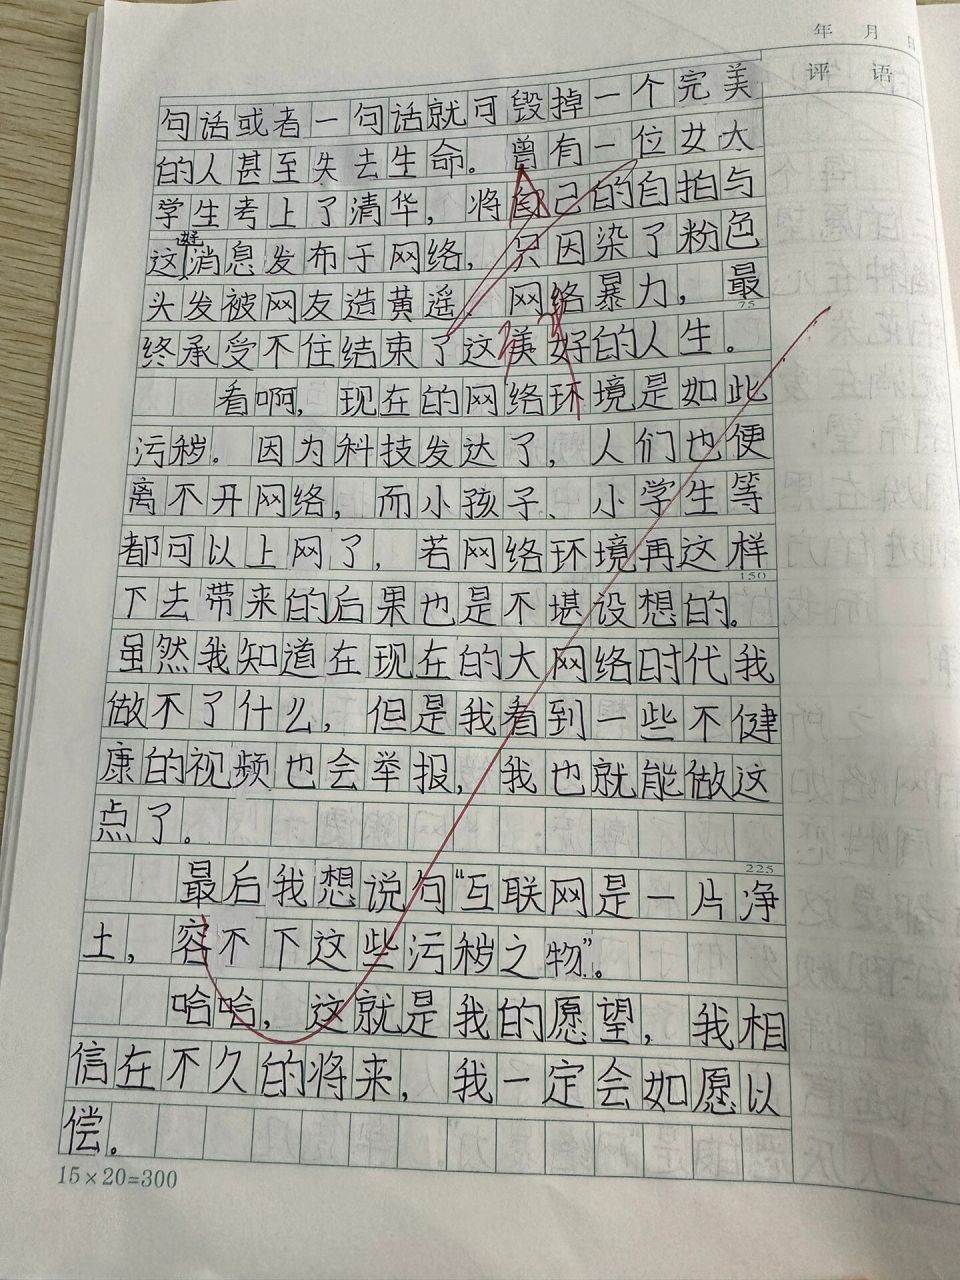 年 月 日
评 语
句话或者一句话就可毁掉一个完美
的人甚至失去生命。曾有一位女大
学生考上了清华，将自己的自拍与
这好消息发布于网络，只因染了粉色
头发被网友造黄遥，网络暴力，最
75
终承受不住结束了这美好的人生。
看啊，现在的网络环境是如此
污秽。因为科技发达了，人们也便
离不开网络，而小孩子、小学生等
都可以上网了，若网络环境再这样
150
下去带来的后果也是不堪设想的。
虽然我知道在现在的大网络时代我
做不了什么，但是我看到一些不健
康的视频也会举报，我也就能做这
点了。
225
最后我想说句“互联网是一片净
土，容不下这些污秽之物”。
哈哈，这就是我的愿望，我相
信在不久的将来，我一定会如愿以
偿。
15×20=300